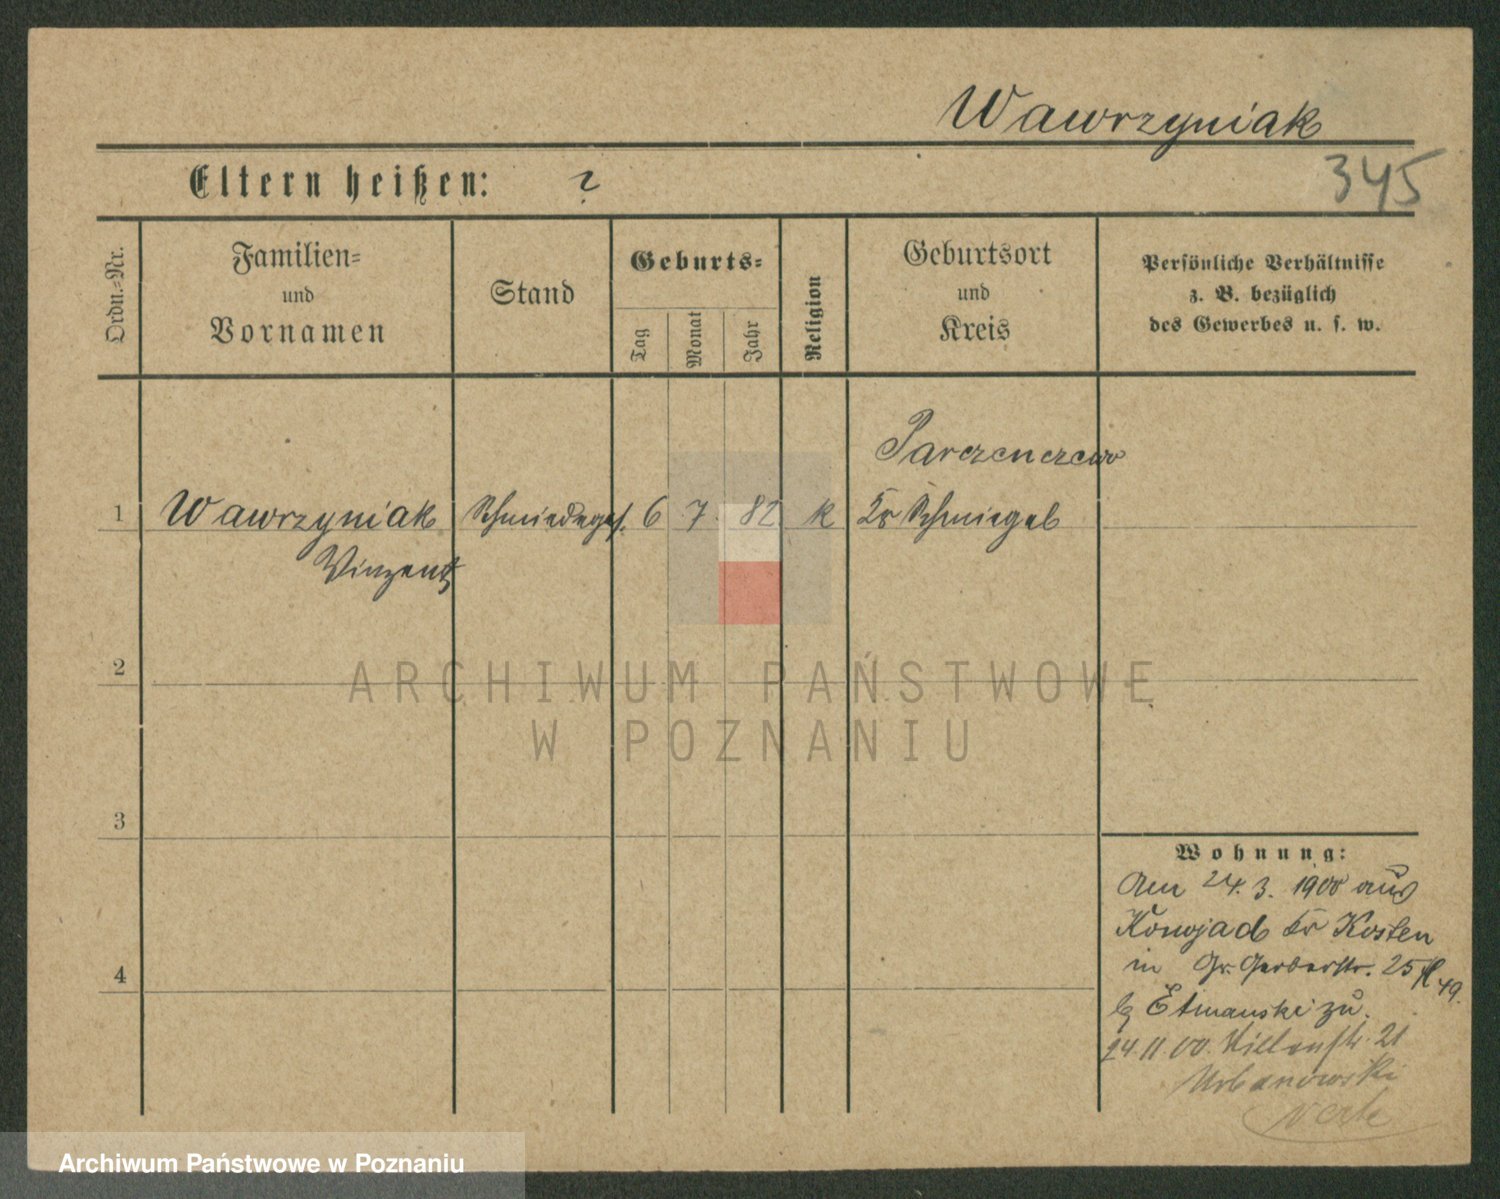 Wawrzyniak
345
Eltern heißen: ?
Ordn.-Nr.
Familien-
und
Vornamen
Stand
Geburts-
Tag
Monat
Jahr
Religion
Geburtsort
und
Kreis
Persönliche Verhältnisse
z. B. bezüglich
des Gewerbes u. s. w.
Parczenczewo
1 Wawrzyniak Schmiedeges. 6 7 82 k Kr Schmiegel
Vinzent
2
ARCHIWUM PAŃSTWOWE
W POZNANIU
3
4
Wohnung:
Am 24.3. 1900 aus
Konojad Kr Kosten
in Gr. Gerberstr. 25
49.
b Etmanski zu.
24.11.00. 21
Urbanowski
Archiwum Państwowe w Poznaniu